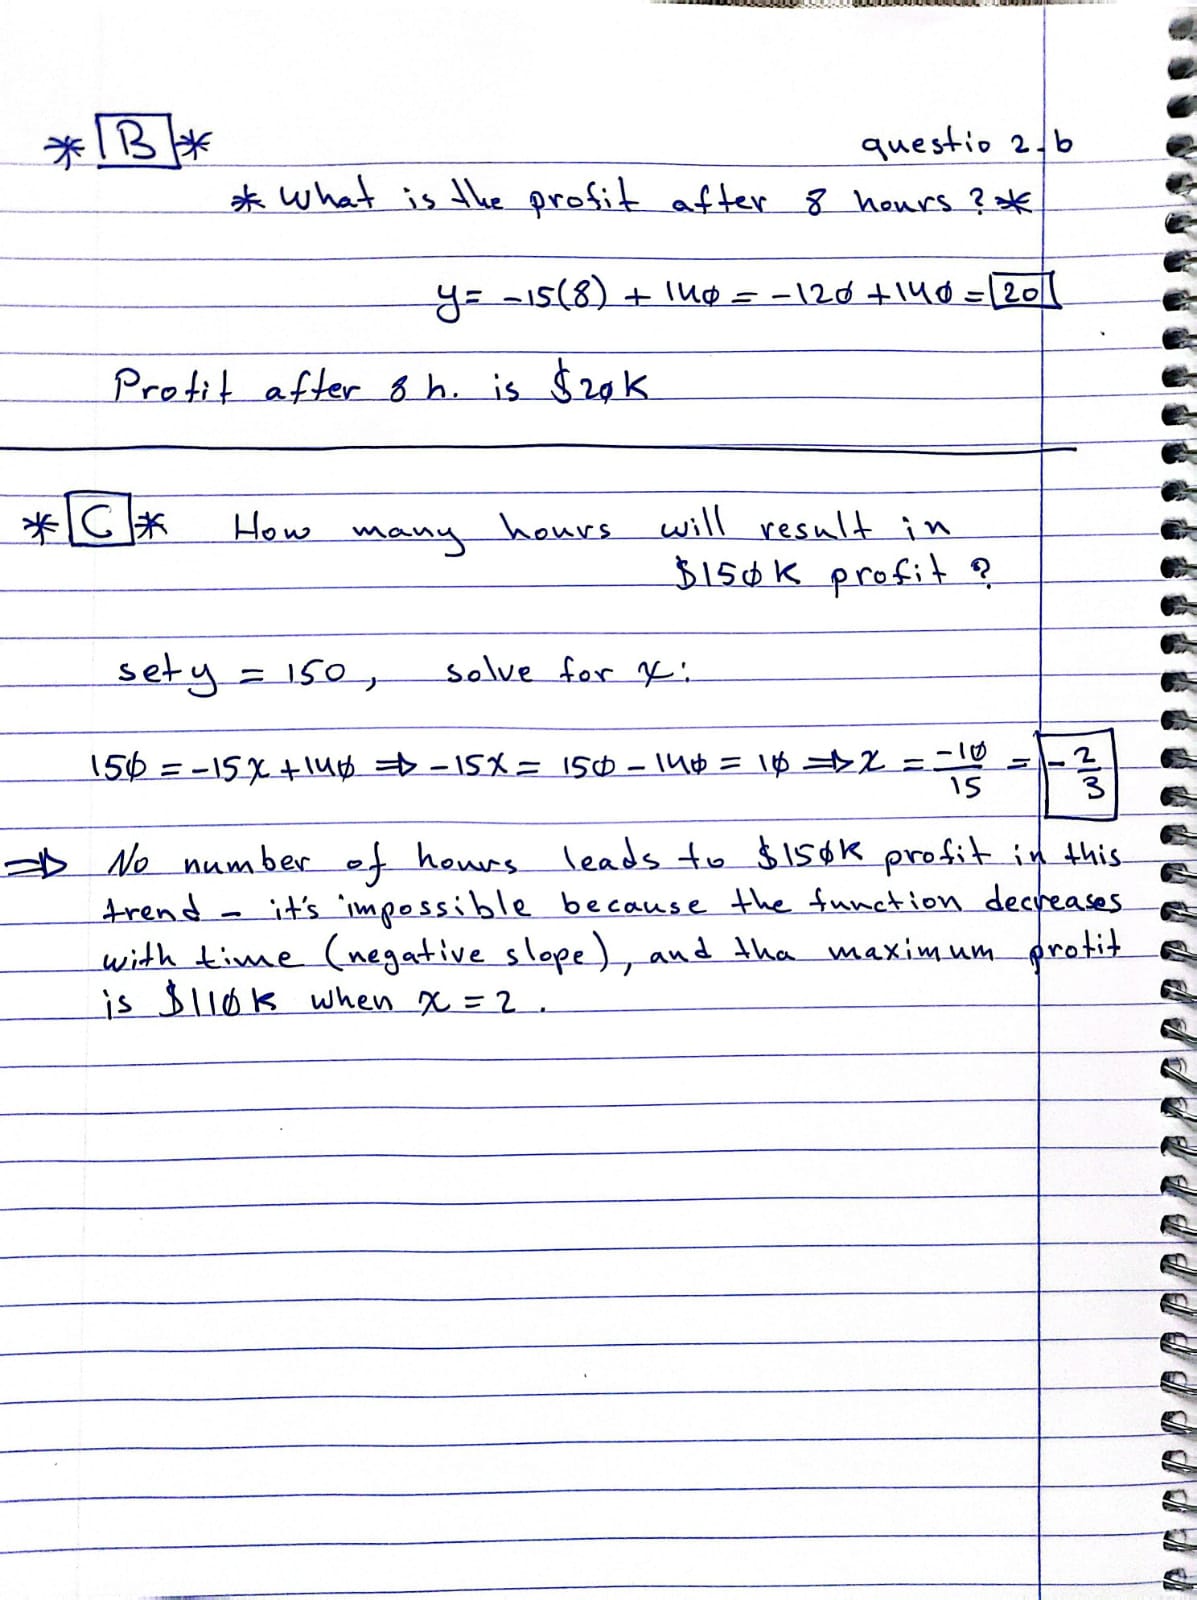 * B * questio 2.b
* What is the profit after 8 hours? *
y = -15(8) + 140 = -120 + 140 = 20
Profit after 8 h. is $20K
* C * How many hours will result in
$150K profit ?
set y = 150, solve for x:
150 = -15x + 140 ⇒ -15x = 150 - 140 = 10 ⇒ x = -10/15 = -2/3
⇒ No number of hours leads to $150K profit in this
trend - it's impossible because the function decreases
with time (negative slope), and tha maximum profit
is $110K when x = 2.